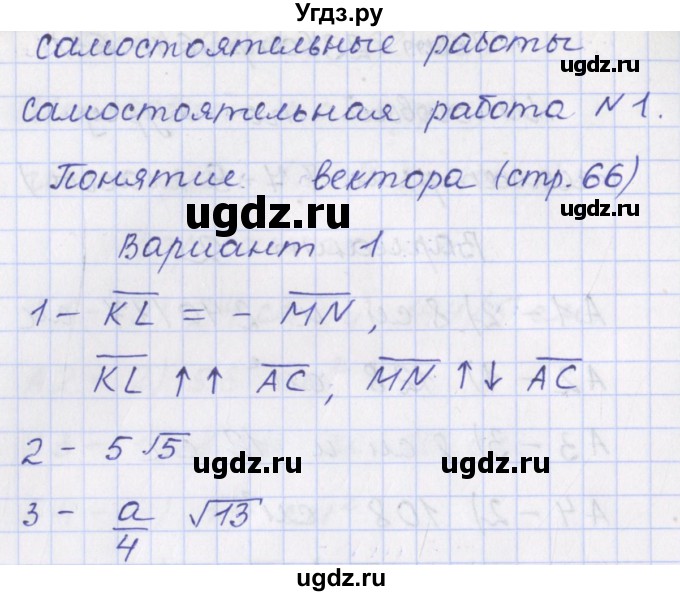 Угдз.ру
самостоятельные работы
ugdz.ru
самостоятельная работа N1.
Понятие вектора (стр. 66)
ugdz.ru
ugdz.ru
Вариант 1
1 - K̅L̅ = - M̅N̅,
ugdz.ru
K̅L̅ ↑↑ A̅C̅, M̅N̅ ↑↓ A̅C̅
2 - 5√5
ugdz.ru ugdz.ru
3 - a/4 √13
ugdz.ru